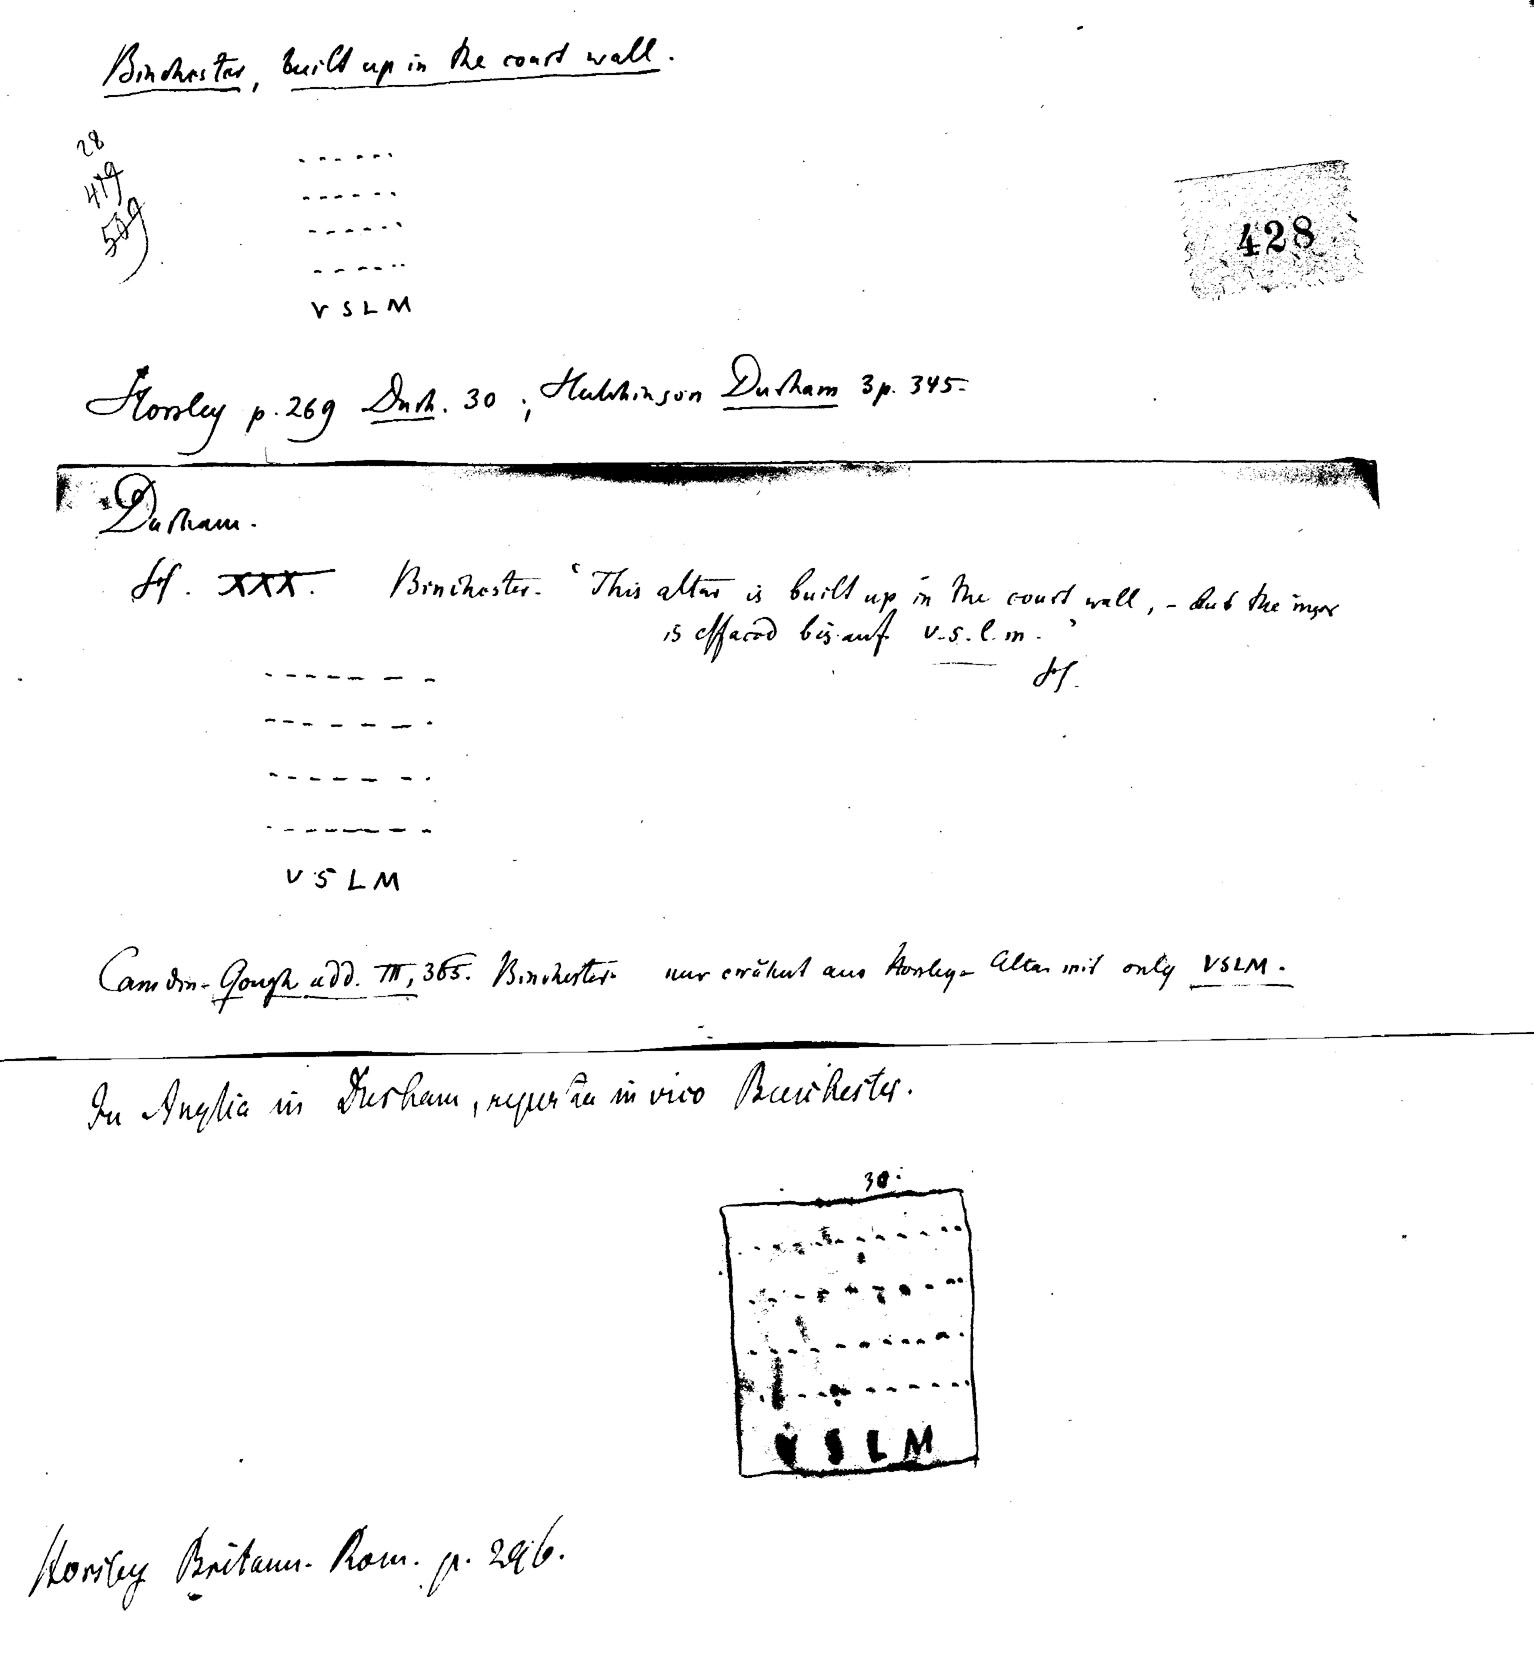 Binchester, built up in the court wall.
28
419
509
428
- - - - - -
- - - - - -
- - - - - -
- - - - - -
V S L M
Horsley p. 269 Durh. 30; Hutchinson Durham 3 p. 345.
Durham.
Hf. XXX. Binchester. 'This altar is built up in the court wall, - but the inscr
is effaced bis auf v.s.l.m.'
Hf.
- - - - - - -
- - - - - - -
- - - - - - -
- - - - - - -
V S L M
Camden-Gough add. III, 365. Binchester nur erwähnt aus Horsley - Altar mit only VSLM.
In Anglia in Durham, reperta in vico Binchester.
30.
- - - - - - - - - -
- - - - - - - - - -
- - - - - - - - - -
- - - - - - - - - -
V S L M
Horsley Britann. Rom. p. 296.